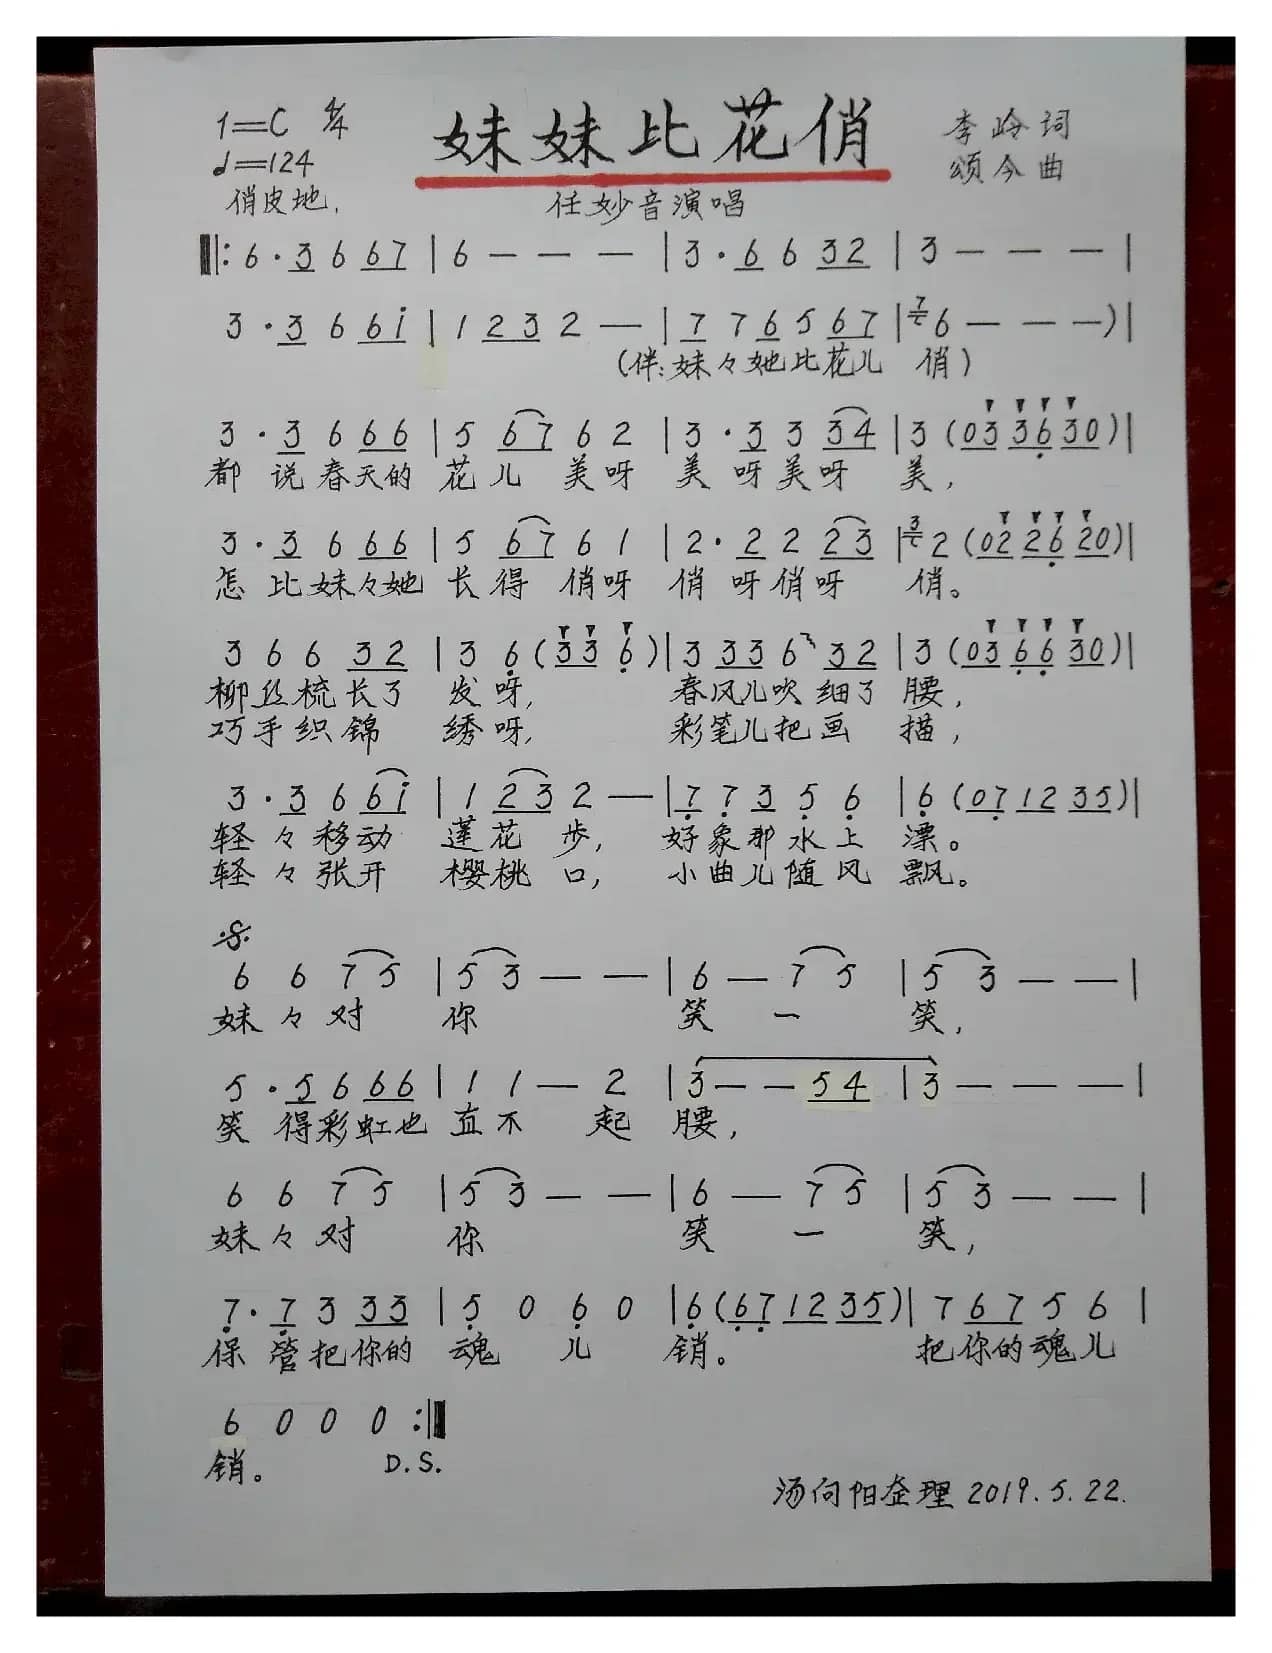 1=C 4/4
♩=124
俏皮地.
妹妹比花俏
任妙音演唱
李岭词
颂今曲
‖: 6 · 3 6 6 7 | 6 — — — | 3 · 6 6 3 2 | 3 — — — |
3 · 3 6 6 i | 1 2 3 2 — | 7 7 6 5 6 7 | 7 6 — — — ) |
(伴:妹々她比花儿 俏)
3 · 3 6 6 6 | 5 6 7 6 2 | 3 · 3 3 3 4 | 3 ( 0 3 3 6 3 0 ) |
都 说春天的 花儿 美呀 美 呀美呀 美,
3 · 3 6 6 6 | 5 6 7 6 1 | 2 · 2 2 2 3 | 3 2 ( 0 2 2 6 2 0 ) |
怎 比妹々她 长得 俏呀 俏 呀俏呀 俏。
3 6 6 3 2 | 3 6 ( 3 3 6 ) | 3 3 3 6 3 2 | 3 ( 0 3 6 6 3 0 ) |
柳丝梳长了 发呀, 春风儿吹细了 腰,
巧手织锦 绣呀, 彩笔儿把画 描,
3 · 3 6 6 i | 1 2 3 2 — | 7 7 3 5 6 | 6 ( 0 7 1 2 3 5 ) |
轻々移动 莲花 步, 好象那水上 漂。
轻々张开 樱桃 口, 小曲儿随风 飘。
6 6 7 5 | 5 3 — — | 6 — 7 5 | 5 3 — — |
妹々对 你 笑 一 笑,
5 · 5 6 6 6 | 1 1 — 2 | 3 — — 5 4 | 3 — — — |
笑 得彩虹也 直不 起 腰,
6 6 7 5 | 5 3 — — | 6 — 7 5 | 5 3 — — |
妹々对 你 笑 一 笑,
7 · 7 3 3 3 | 5 0 6 0 | 6 ( 6 7 1 2 3 5 ) | 7 6 7 5 6 |
保 管把你的 魂 儿 销。 把你的魂儿
6 0 0 0 :‖
销。 D.S.
汤向阳奎理 2019.5.22.